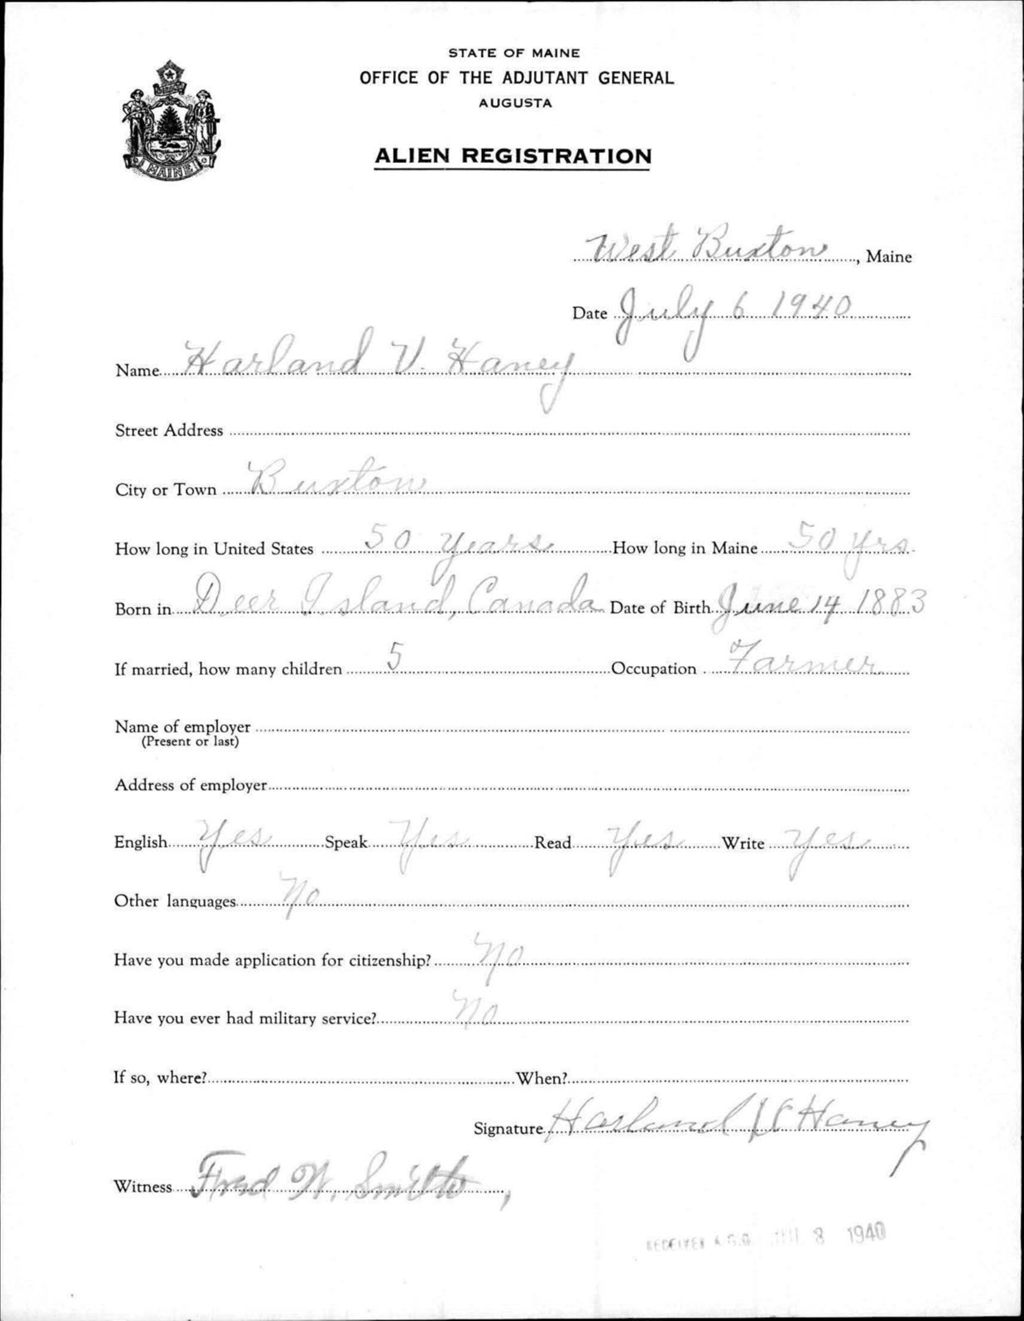 STATE OF MAINE
OFFICE OF THE ADJUTANT GENERAL
AUGUSTA
ALIEN REGISTRATION
MAINE
West Buxton, Maine
Date July 6 1940
Name Harland V. Haney
Street Address
City or Town Buxton
How long in United States 50 years How long in Maine 50 yrs.
Born in Deer Island, Canada Date of Birth June 14 1883
If married, how many children 5 Occupation Farmer
Name of employer
(Present or last)
Address of employer
English Yes Speak Yes Read Yes Write Yes
Other languages No
Have you made application for citizenship? No
Have you ever had military service? No
If so, where? When?
Signature Harland V Haney
Witness Fred W. Smith,
RECEIVED A.G.O. JUL 8 1940